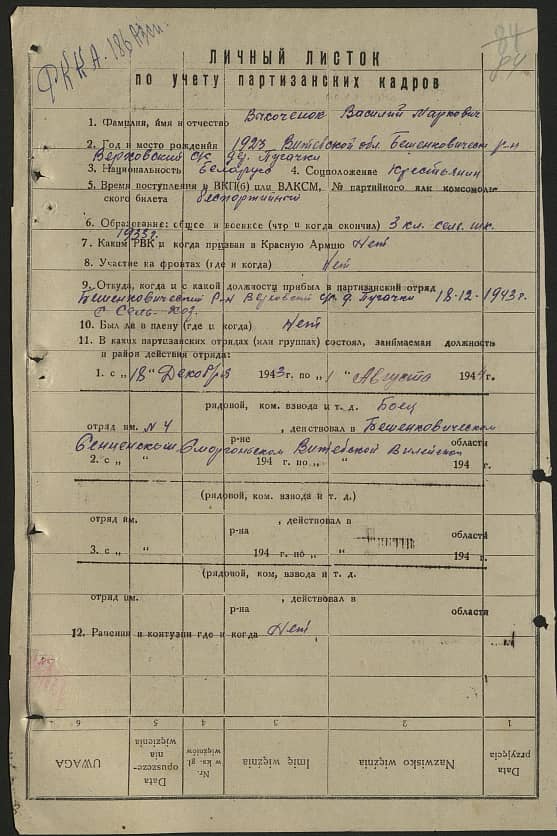 РКНА. 186
84
84
ЛИЧНЫЙ ЛИСТОК
по учету партизанских кадров
1. Фамилия, имя и отчество Высоченок Василий Маркович
2. Год и место рождения 1923 Витебской обл. Бешенкович р-н
Верховский с/с д. Пугачки
3. Национальность Беларус 4. Соцположение Крестьянин
5. Время поступления в ВКП(б) или ВЛКСМ, № партийного или комсомоль-
ского билета беспартийный
6. Образование: общее и военное (что и когда окончил) 3 кл. сель. шк.
1933 г.
7. Каким РВК и когда призван в Красную Армию Нет
8. Участие на фронтах (где и когда) Нет
9. Откуда, когда и с какой должности прибыл в партизанский отряд
Бешенковический р-н Верховский с/с д. Пугачки 18-12-1943 г.
с Сель-хоз.
10. Был ли в плену (где и когда) Нет
11. В каких партизанских отрядах (или группах) состоял, занимаемая должность
и район действия отряда:
1. с „ 18 " Декабря 1943 г. по „ 1 " Августа 1944 г.
рядовой, ком. взвода и т. д. Боец
отряд им. № 4 , действовал в Бешенковическом
Сенненском Сморгоньском р-не Витебской Вилейской области
2. с „ " 194 г. по „ " 194 г.
(рядовой, ком. взвода и т. д.)
отряд им. , действовал в
р-на области
3. с „ " 194 г. по „ " 194 г.
(рядовой, ком, взвода и т. д.
отряд им. , действовал в
р-на области
12. Ранения и контузии где и когда Нет
6 5 4 3 2 1
UWAGA
Data opuszcze-nia więzienia
Nr. w ks. gł. więźniów
Imię więźnia
Nazwisko więźnia
Data przyjęcia